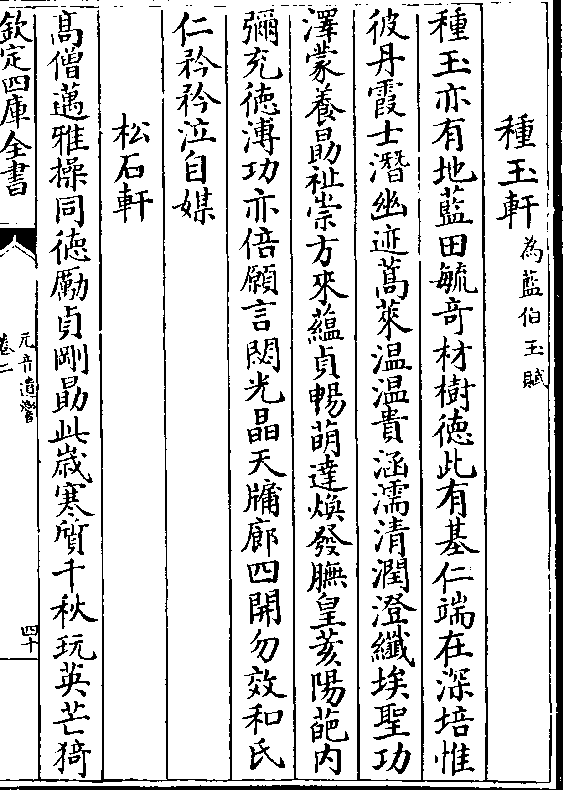 種玉軒為藍伯玉賦
種玉亦有地藍田毓竒材樹徳此有基仁端在深培惟
彼丹霞士潛幽迹蒿萊温温貴涵濡清潤澄纖埃聖功
澤蒙養勗祉崇方來藴貞暢萌達煥發膴皇荄陽葩内
彌充徳溥功亦倍願言閟光晶天牖廊四開勿效和氏
仁矜矜泣自媒
松石軒
髙僧邁雅操同徳勵貞剛勗此歳寒質千秋玩英芒猗
欽定四庫全書
元音遺響
卷二
四十